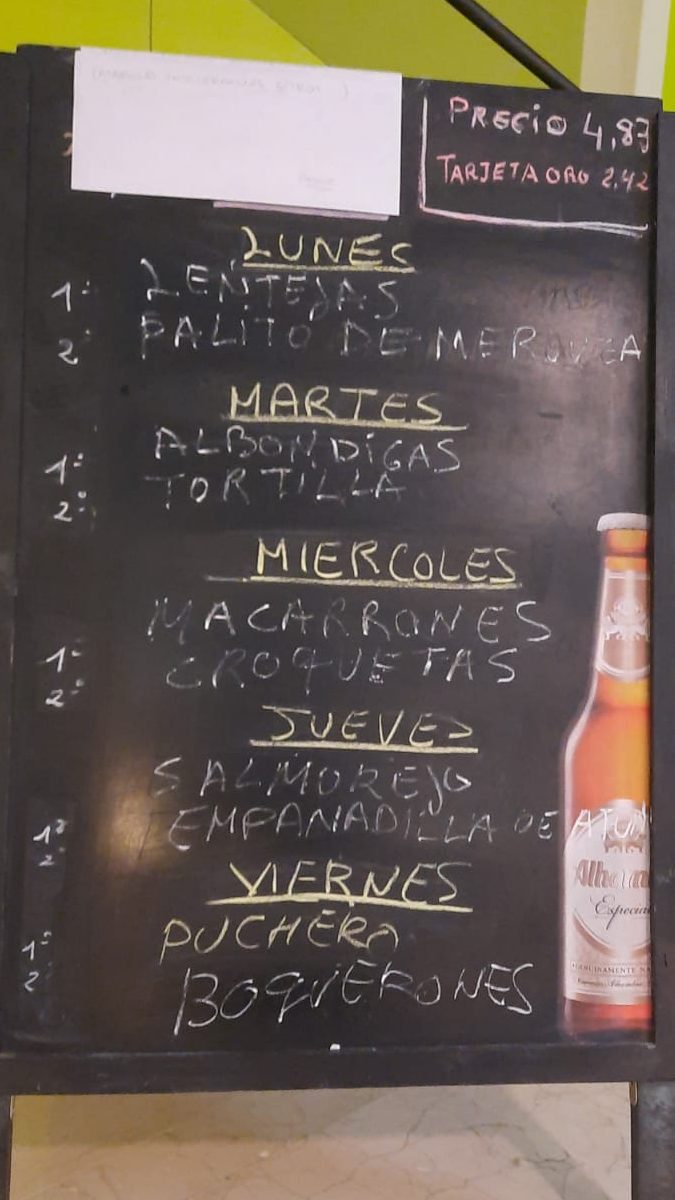 PRECIO 4,83
TARJETA ORO 2,42
LUNES
1º LENTEJAS
2º PALITO DE MERLUZA
MARTES
1º ALBONDIGAS
2º TORTILLA
MIERCOLES
1º MACARRONES
2º CROQUETAS
JUEVES
1º SALMOREJO
2º EMPANADILLA DE ATUN
VIERNES
1º PUCHERO
2º BOQUERONES
Alham
Especial